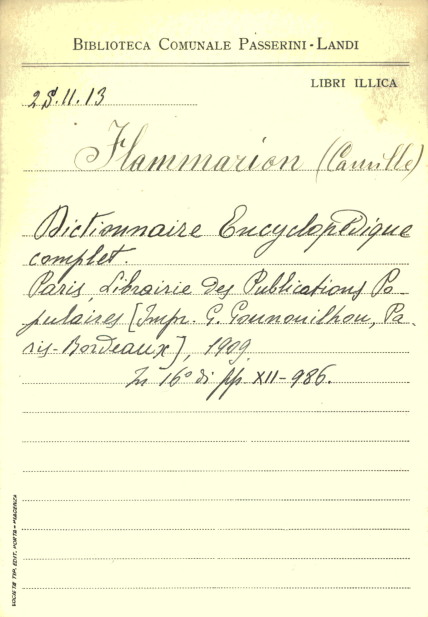 BIBLIOTECA COMUNALE PASSERINI-LANDI
LIBRI ILLICA
25.11.13
Flammarion (Camille)
Dictionnaire Encyclopédique
complet.
Paris, Librairie des Publications Po-
pulaires [Impr. G. Gounouilhou, Pa-
ris-Bordeaux], 1909.
In 16° di pp. XII-986.
SOCIETÀ TIP. EDIT. PORTA - PIACENZA